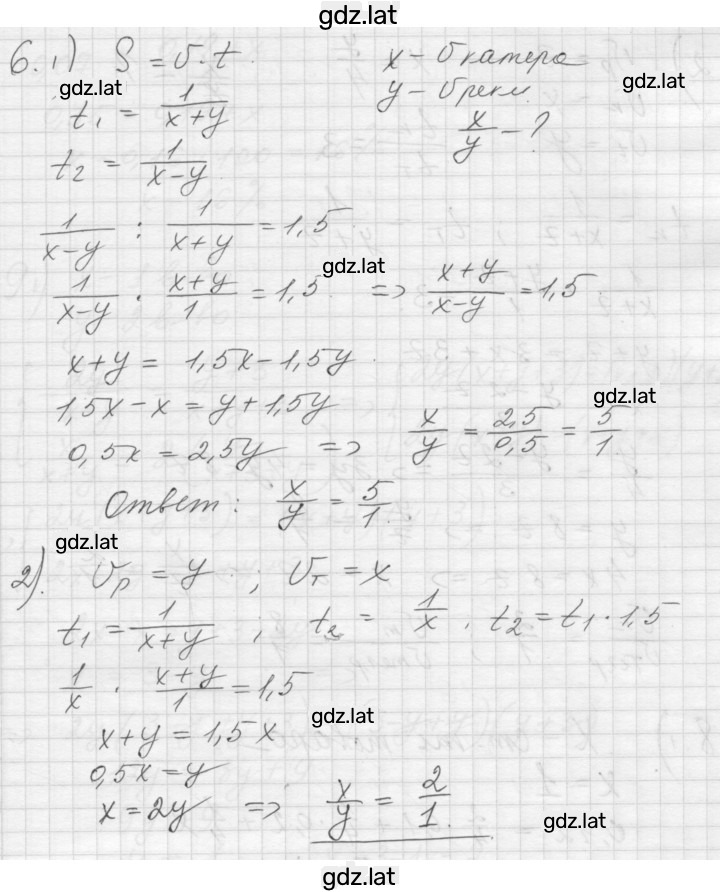 gdz.lat
6. 1) S = v · t.
x – v катера
y – v реки.
x/y – ?
gdz.lat
gdz.lat
t₁ = 1/(x+y)
t₂ = 1/(x–y)
1/(x–y) : 1/(x+y) = 1,5
gdz.lat
1/(x–y) · (x+y)/1 = 1,5. => (x+y)/(x–y) = 1,5.
x+y = 1,5x – 1,5y.
1,5x – x = y + 1,5y
gdz.lat
0,5x = 2,5y => x/y = 2,5/0,5 = 5/1
Ответ: x/y = 5/1.
gdz.lat
2). vр = y ; vт = x
t₁ = 1/(x+y) ; t₂ = 1/x . t₂ = t₁ · 1,5
1/x · (x+y)/1 = 1,5
gdz.lat
x+y = 1,5x
0,5x = y
x = 2y => x/y = 2/1.
gdz.lat
gdz.lat